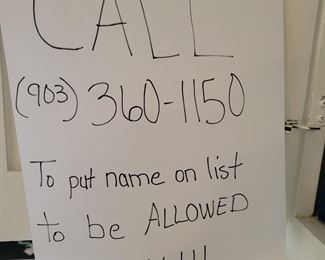 CALL
(903) 360-1150
To put name on list
to be ALLOWED